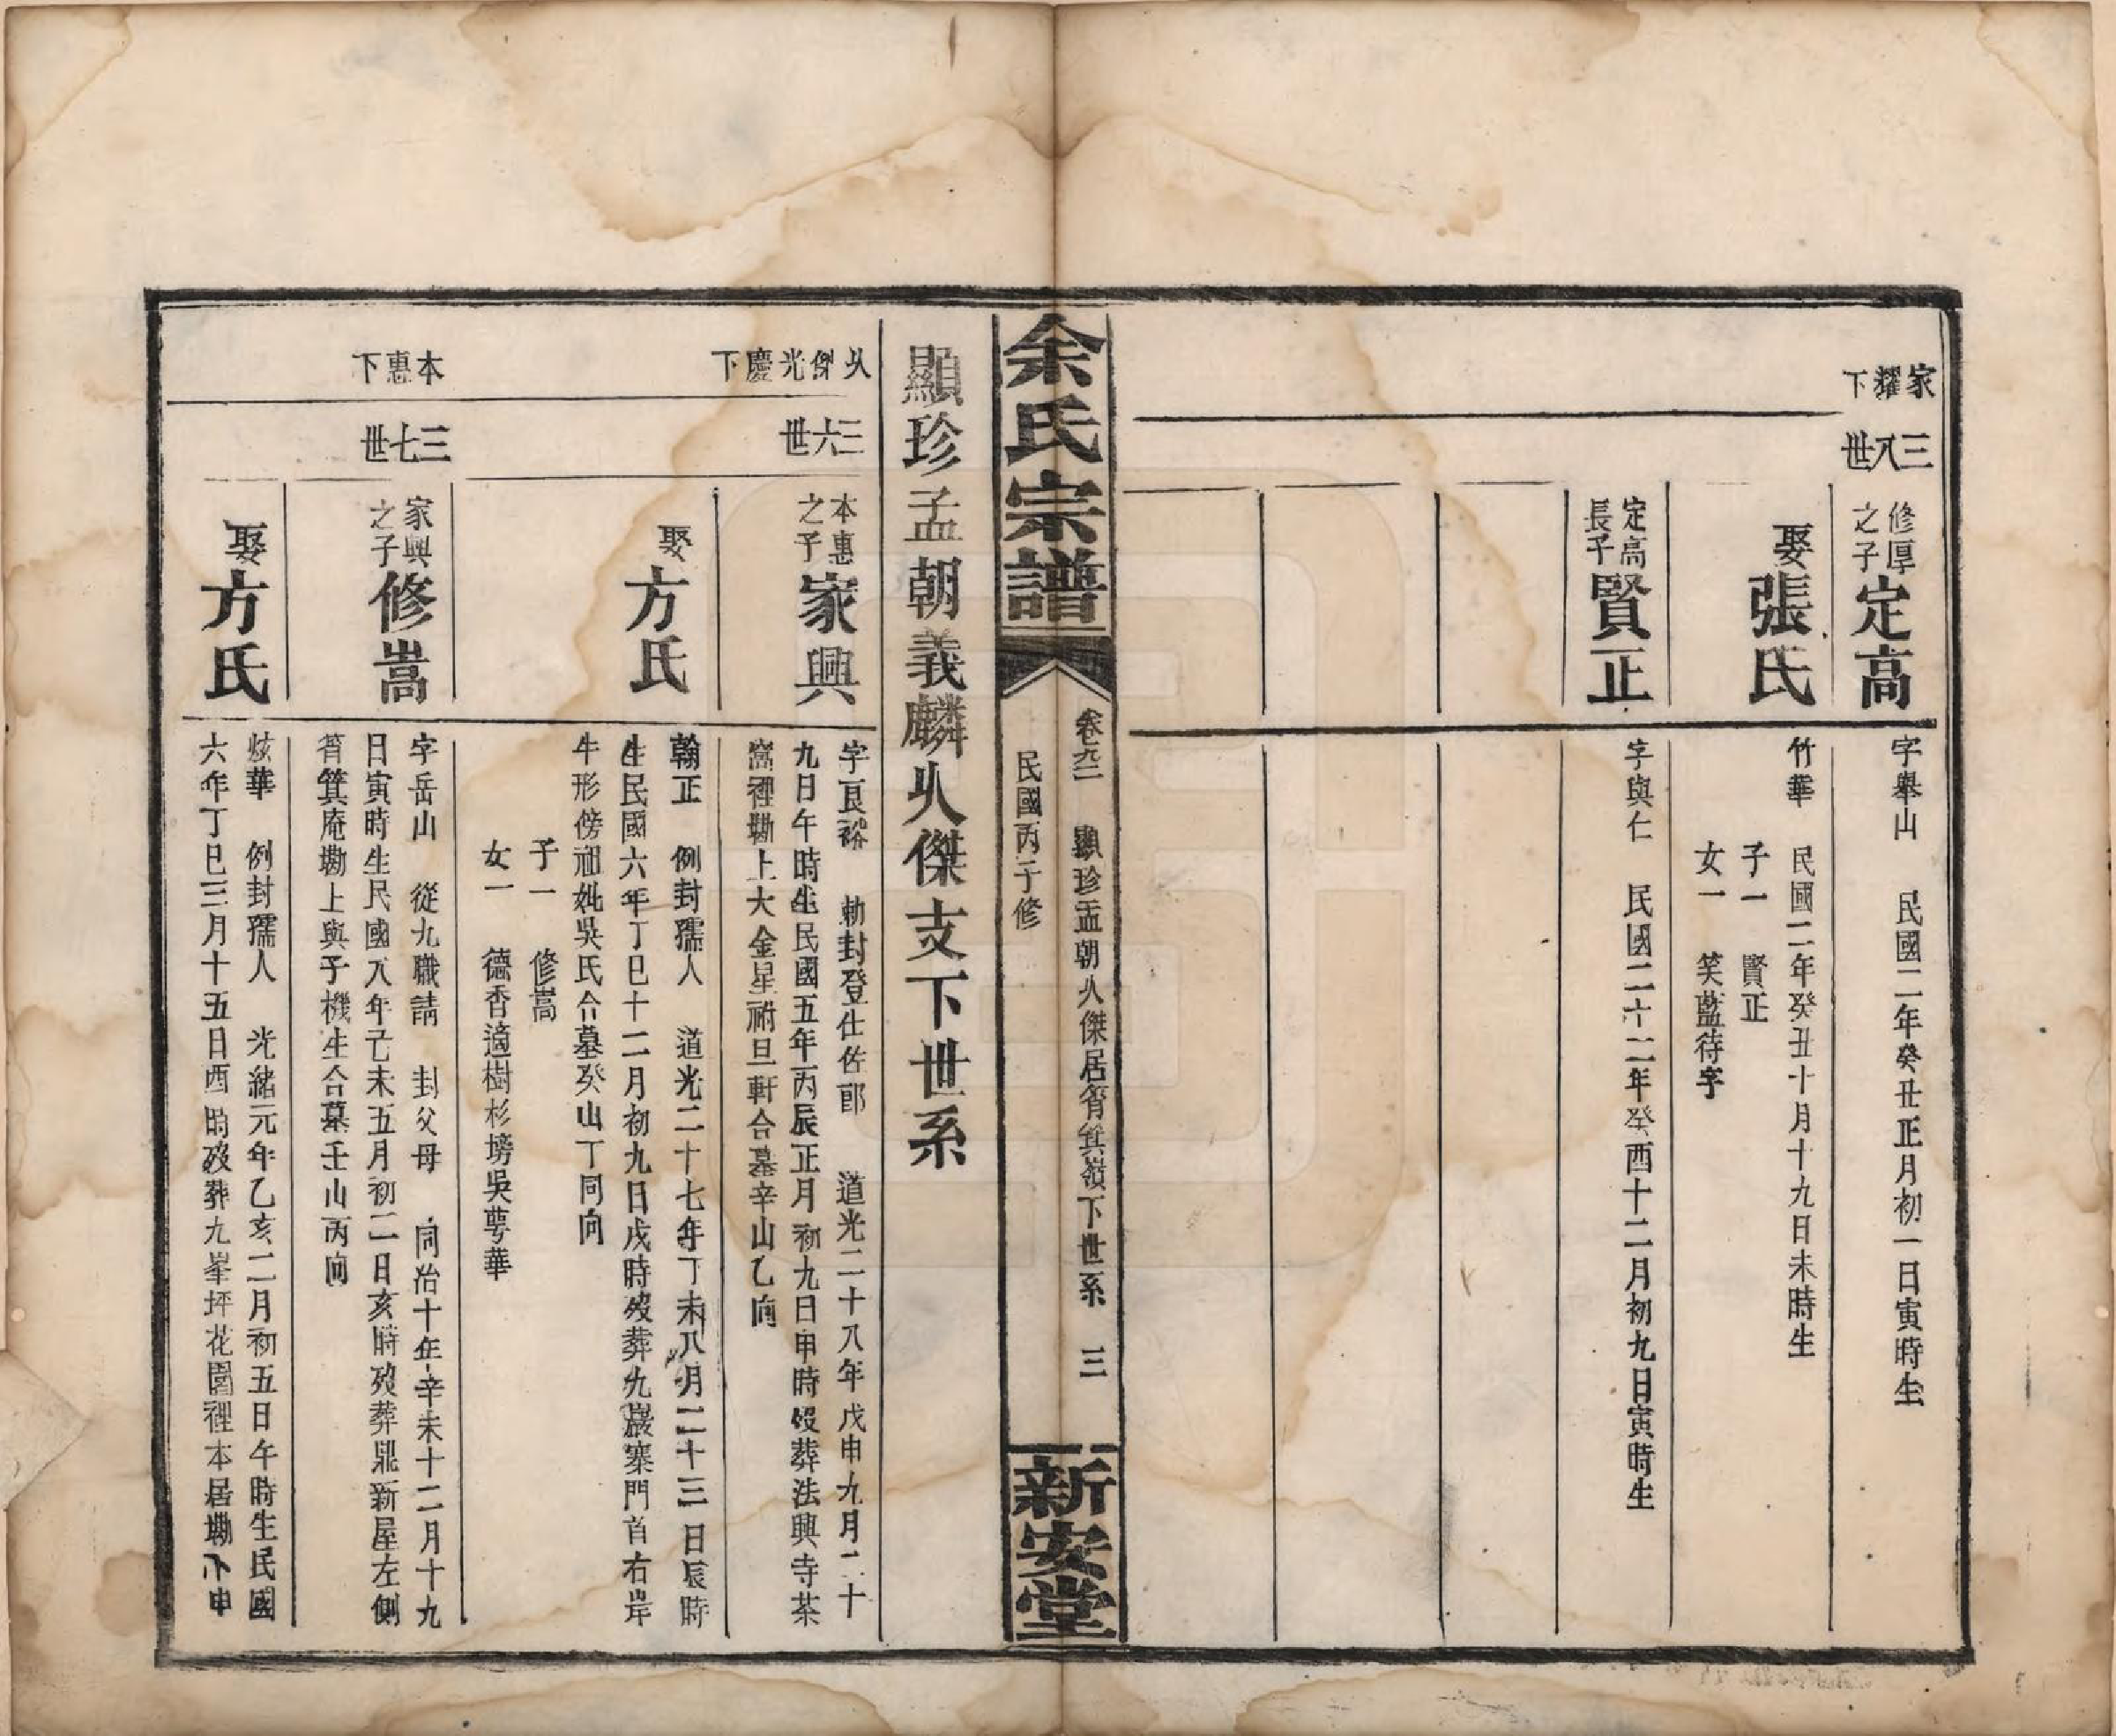 家耀下
三八世
修厚之子
定高
字舉山 民國二年癸丑正月初一日寅時生
娶張氏
竹華 民國二年癸丑十月十九日未時生
子一 賢正
女一 笑藍待字
定高長子
賢正
字與仁 民國二十二年癸酉十二月初九日寅時生
余氏宗譜
顯珍孟朝火傑居筲箕嶺下世系 三
民國丙子修
新安堂
顯珍孟朝義麟火傑支下世系
火傑光慶下
三六世
本惠之子
家興
字良裕 勅封登仕佐郎 道光二十八年戊申九月二十
九日午時生民國五年丙辰正月初九日申時歿葬法興寺茶
窩裡塝上大金星祔旦軒合墓辛山乙向
娶方氏
翰正 例封孺人 道光二十七年丁未八月二十三日辰時
生民國六年丁巳十二月初九日戌時歿葬九嚴寨門首右岸
牛形傍祖妣吳氏合墓癸山丁同向
子一 修嵩
女一 德香適樹杉塝吳萼華
本惠下
三七世
家興之子
修嵩
字岳山 從九職請 封父母 同治十年辛未十二月十九
日寅時生民國八年己未五月初二日亥時歿葬鼎新屋左側
筲箕庵塝上與子機生合墓壬山丙向
娶方氏
炫華 例封孺人 光緒元年乙亥二月初五日午時生民國
六年丁巳三月十五日酉時歿葬九峯坪花園裡本居塝下申